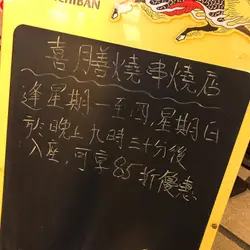 ICHIBAN
喜膳燒串燒店
逢星期一至四,星期日
於晚上九時三十分後
入座,可享85折優惠